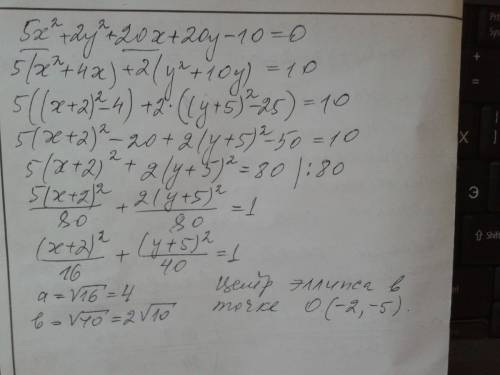 5x²+2y²+20x+20y-10=0
5(x²+4x)+2(y²+10y)=10
5((x+2)²-4)+2·((y+5)²-25)=10
5(x+2)²-20+2(y+5)²-50=10
5(x+2)²+2(y+5)²=80 |:80
5(x+2)²/80 + 2(y+5)²/80 =1
(x+2)²/16 + (y+5)²/40 =1
a=√16=4
b=√40=2√10
Центр эллипса в
точке O(-2,-5).
+
=
X
Э
⇧SHIFT